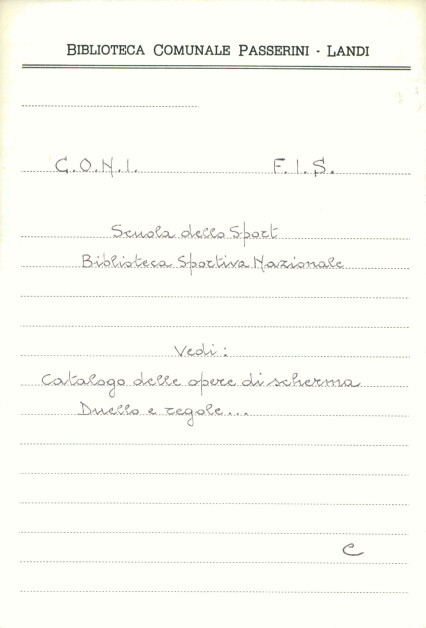 BIBLIOTECA COMUNALE PASSERINI - LANDI
C.O.N.I. F.I.S.
Scuola dello Sport
Biblioteca Sportiva Nazionale
Vedi:
Catalogo delle opere di scherma
Duello e regole...
C